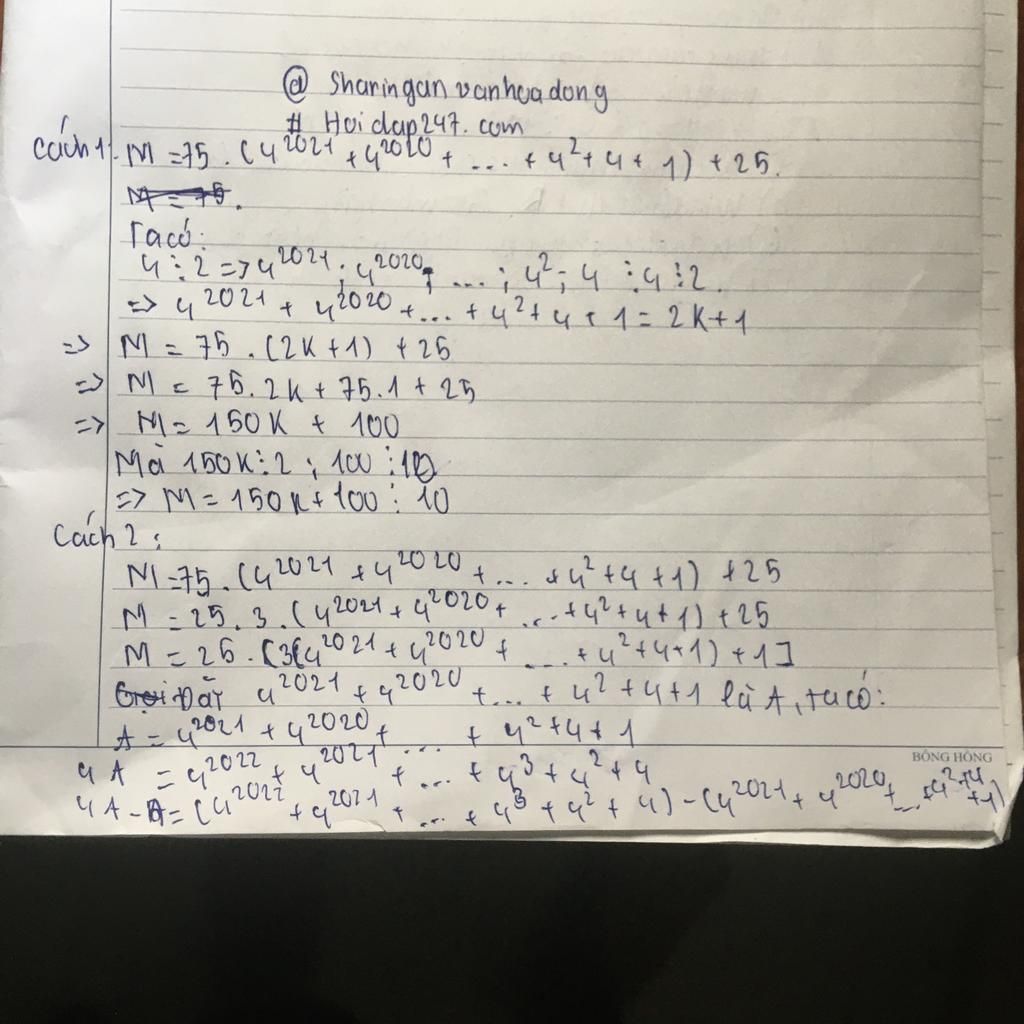 @ Sharingan vanhoadong
# Hoidap247.com
Cách 1: M = 75 . (4^2021 + 4^2020 + ... + 4^2 + 4 + 1) + 25.
M = 75.
Ta có:
4 ⋮ 2 => 4^2021 ; 4^2020 ; ... ; 4^2 ; 4 ⋮ 4 ⋮ 2.
=> 4^2021 + 4^2020 + ... + 4^2 + 4 + 1 = 2K+1
=> M = 75 . (2K+1) + 25
=> M = 75.2K + 75.1 + 25
=> M = 150K + 100
Mà 150K ⋮ 2 ; 100 ⋮ 10
=> M = 150K + 100 ⋮ 10
Cách 2 :
M = 75 . (4^2021 + 4^2020 + ... + 4^2 + 4 + 1) + 25
M = 25 . 3 . (4^2021 + 4^2020 + ... + 4^2 + 4 + 1) + 25
M = 25 . [3(4^2021 + 4^2020 + ... + 4^2 + 4 + 1) + 1]
Gọi Đặt 4^2021 + 4^2020 + ... + 4^2 + 4 + 1 là A, ta có:
A = 4^2021 + 4^2020 + ... + 4^2 + 4 + 1
BÔNG HỒNG
4A = 4^2022 + 4^2021 + ... + 4^3 + 4^2 + 4
4A - A = (4^2022 + 4^2021 + ... + 4^3 + 4^2 + 4) - (4^2021 + 4^2020 + ... + 4^2 + 4 + 1)